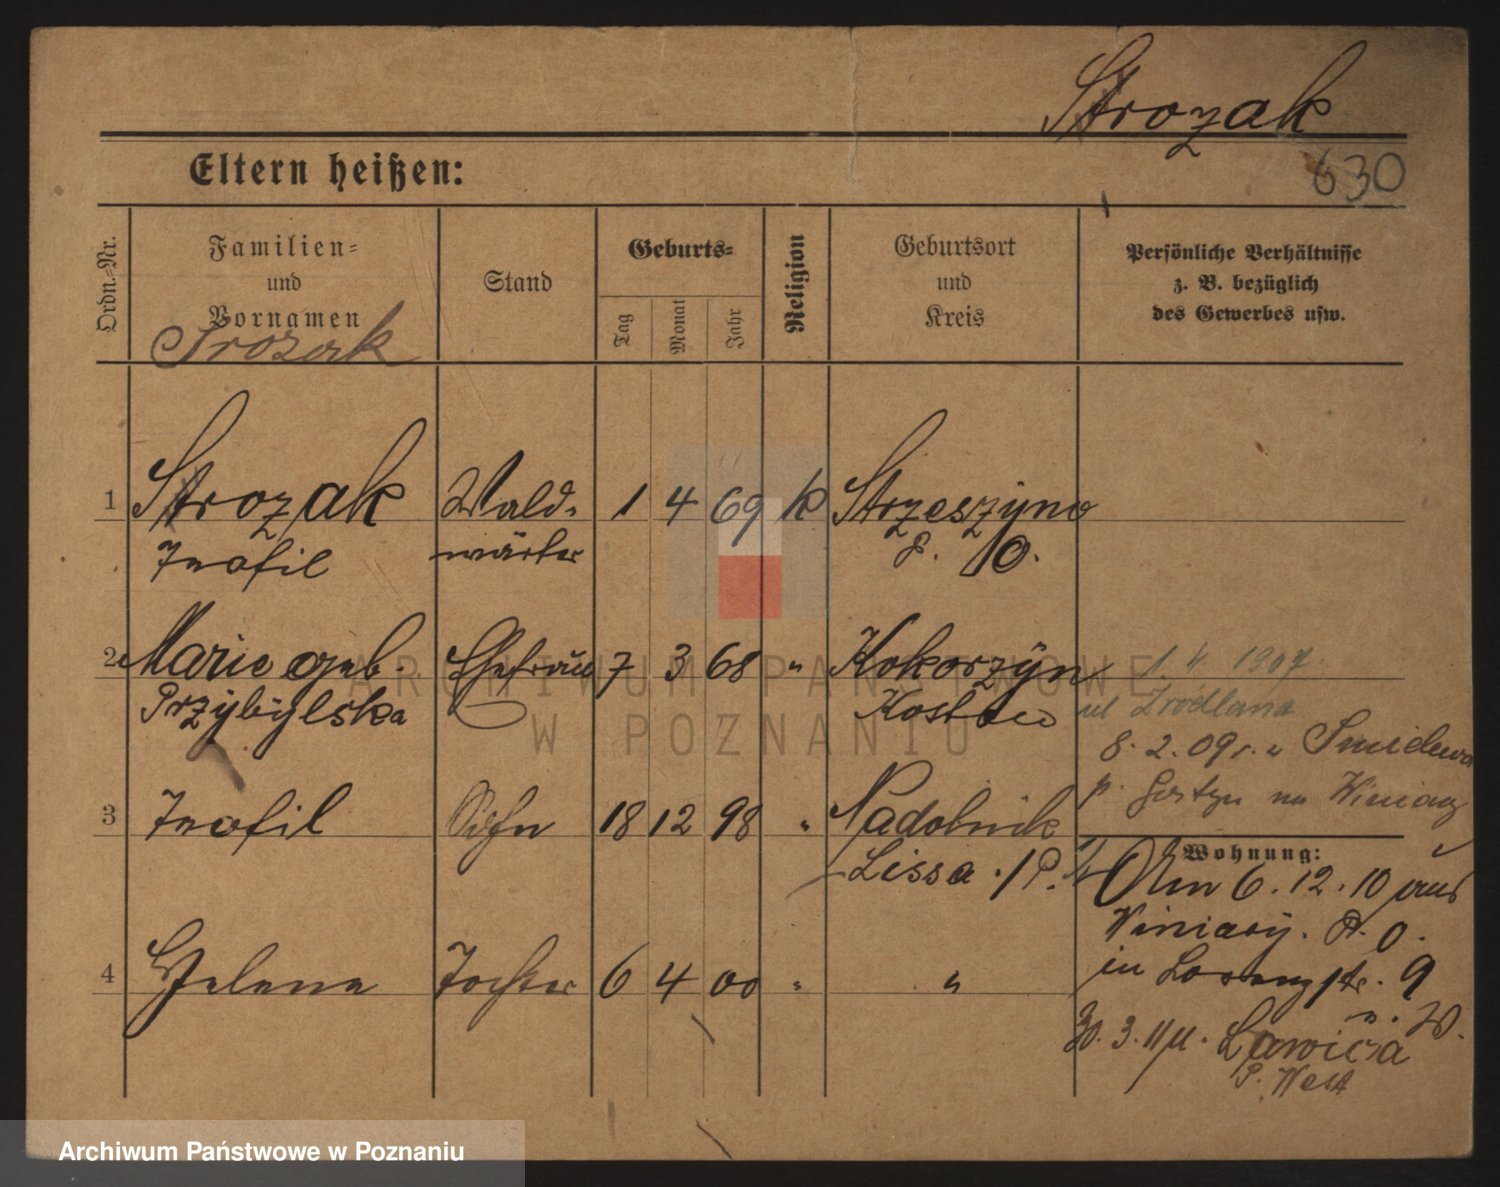 Strozak
Eltern heißen:
630
Ordn.-Nr.
Familien-
und
Vornamen
Strozak
Stand
Geburts-
Tag
Monat
Jahr
Religion
Geburtsort
und
Kreis
Persönliche Verhältnisse
z. B. bezüglich
des Gewerbes usw.
1 Strozak Wald- 1 4 69 k Strzeszyno
Teofil wärter P. O.
2 Marie geb. Ehefrau 7 3 68 " Kokorzyn
Przybylska Kosten
1.4.1907
ul Zrodlana
8.2.09
p. Gostyn Winiary
3 Teofil Sohn 18 12 98 " Nadolnik
Lissa i/P.
Wohnung:
Am 6.12.10 aus
Winiary. P. O.
in Lorenzstr. 9
4 Helena Tochter 6 4 00 " "
30.3.11 n. Lawica
P. West
ARCHIWUM PAŃSTWOWE
W POZNANIU
Archiwum Państwowe w Poznaniu